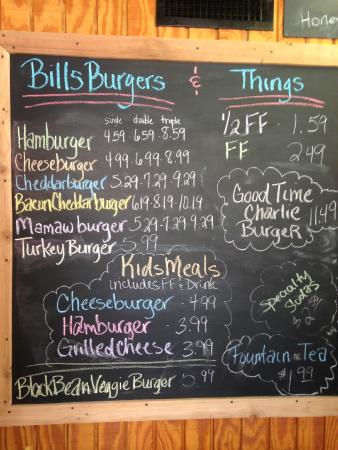 Hone
Bills Burgers & Things
single double triple
Hamburger 4.59 · 6.59 · 8.59
Cheeseburger 4.99 · 6.99 · 8.99
Cheddarburger 5.29 · 7.29 · 9.29
Bacon Cheddarburger 6.19 · 8.19 · 10.19
Mamaw burger 5.29 · 7.29 · 9.29
Turkey Burger 5.99
1/2 FF - 1.59
FF 2.49
Good Time
Charlie
Burger 11.49
Kids Meals
Includes FF & Drink
Cheeseburger - 4.99
Hamburger - 3.99
Grilled Cheese - 3.99
Black Bean Veggie Burger 5.99
Specialty
Sodas
Fountain or Tea
$1.99